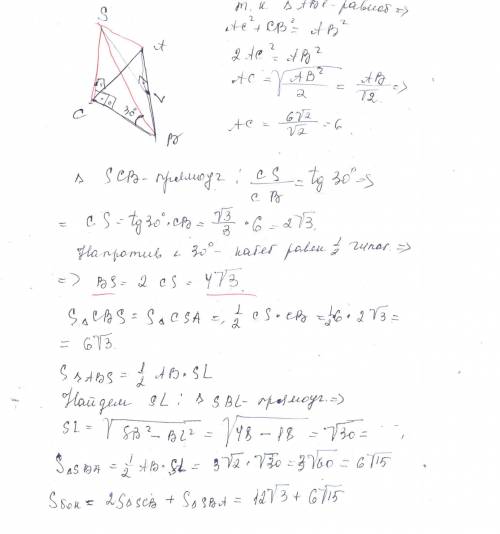 S
A
C
L
B
30°
т. к. △ ABC - равноб =>
AC² + CB² = AB²
2AC² = AB²
AC = √(AB²/2) = AB/√2 =>
AC = 6√2/√2 = 6
△ SCB - прямоуг : CS/CB = tg 30° =>
= CS = tg 30° · CB = √3/3 · 6 = 2√3.
Напротив ∠ 30° - катет равен ½ гипот. =>
=> BS = 2 CS = 4√3.
S△CBS = S△CSA = ½ CS · CB = ½ 6 · 2√3 =
= 6√3.
S△ABS = ½ AB · SL
Найдем SL : △ SBL - прямоуг. =>
SL = √(SB² - BL²) = √(48 - 18) = √30 =
S△SBA = ½ AB · SL = 3√2 · √30 = 3√60 = 6√15
Sбок = 2S△SCB + S△SBA = 12√3 + 6√15